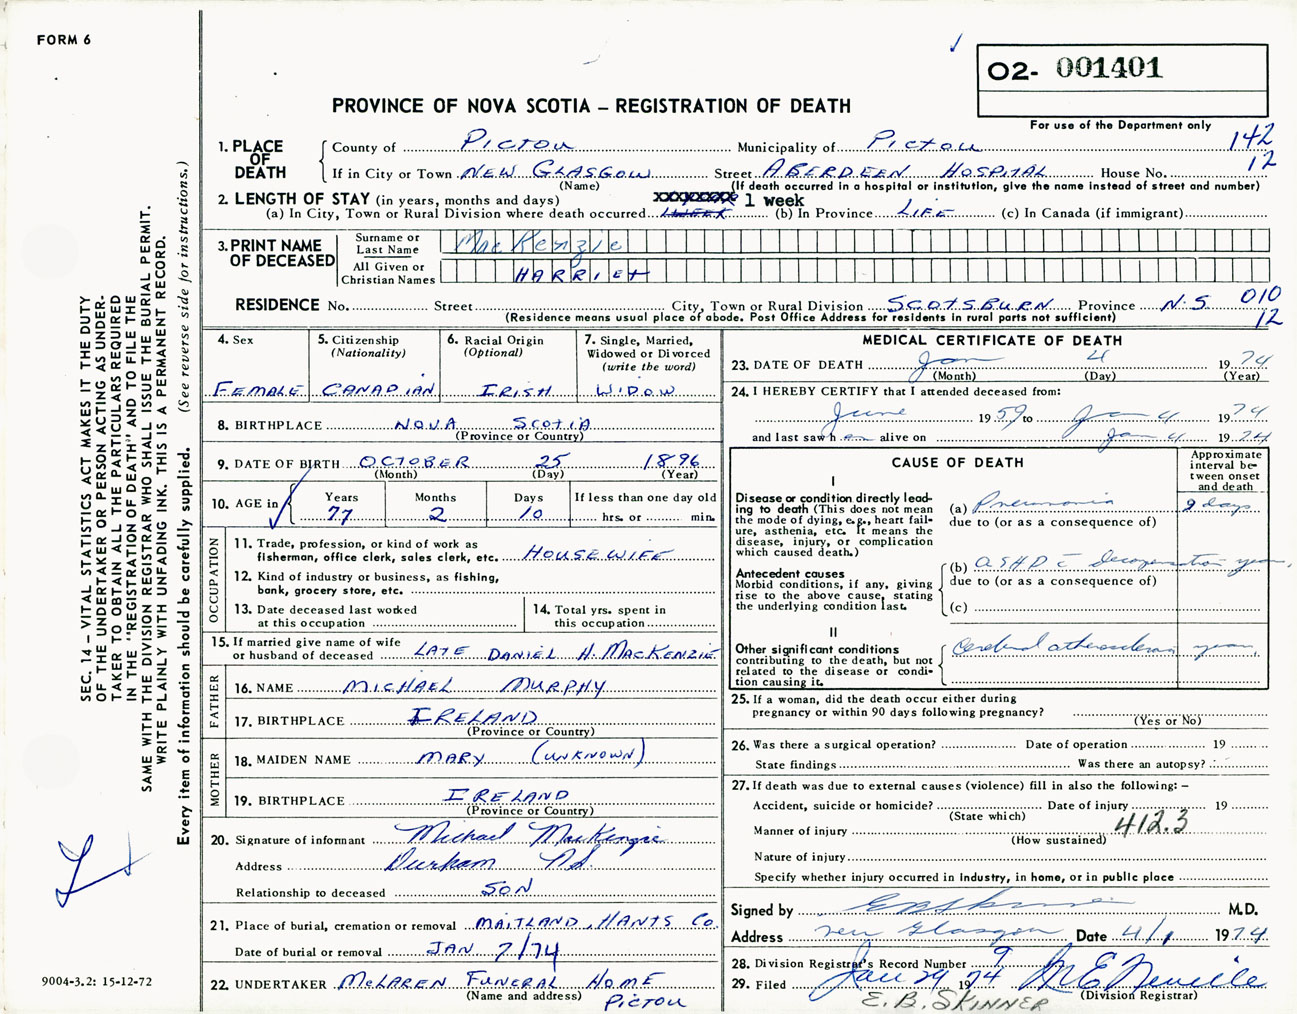 FORM 6
O2- 001401
PROVINCE OF NOVA SCOTIA – REGISTRATION OF DEATH
For use of the Department only
142
12
1. PLACE OF DEATH
County of Pictou Municipality of Pictou
If in City or Town NEW GLASGOW Street ABERDEEN HOSPITAL House No.
(Name) (If death occurred in a hospital or institution, give the name instead of street and number)
2. LENGTH OF STAY (in years, months and days) xxxxxxxx 1 week
(a) In City, Town or Rural Division where death occurred 1 WEEK (b) In Province LIFE (c) In Canada (if immigrant)
3. PRINT NAME OF DECEASED
Surname or Last Name MacKenzie
All Given or Christian Names HARRIET
RESIDENCE No. Street City, Town or Rural Division SCOTSBURN Province N.S. 010
12
(Residence means usual place of abode. Post Office Address for residents in rural parts not sufficient)
4. Sex
FEMALE
5. Citizenship
(Nationality)
CANADIAN
6. Racial Origin
(Optional)
IRISH
7. Single, Married,
Widowed or Divorced
(write the word)
WIDOW
8. BIRTHPLACE NOVA SCOTIA
(Province or Country)
9. DATE OF BIRTH OCTOBER 25 1896
(Month) (Day) (Year)
10. AGE in
Years Months Days If less than one day old
77 2 10 hrs. or min.
OCCUPATION
11. Trade, profession, or kind of work as
fisherman, office clerk, sales clerk, etc. HOUSEWIFE
12. Kind of industry or business, as fishing,
bank, grocery store, etc.
13. Date deceased last worked
at this occupation
14. Total yrs. spent in
this occupation
15. If married give name of wife
or husband of deceased LATE DANIEL H. MACKENZIE
FATHER
16. NAME MICHAEL MURPHY
17. BIRTHPLACE IRELAND
(Province or Country)
MOTHER
18. MAIDEN NAME MARY (UNKNOWN)
19. BIRTHPLACE IRELAND
(Province or Country)
20. Signature of informant Michael MacKenzie
Address Durham N.S.
Relationship to deceased SON
21. Place of burial, cremation or removal MAITLAND, HANTS Co.
Date of burial or removal JAN 7/74
22. UNDERTAKER McLAREN FUNERAL HOME
(Name and address) PICTOU
MEDICAL CERTIFICATE OF DEATH
23. DATE OF DEATH Jan 4 1974
(Month) (Day) (Year)
24. I HEREBY CERTIFY that I attended deceased from:
June 1959 to Jan 4 1974
and last saw her alive on Jan 4 1974
CAUSE OF DEATH
Approximate
interval be-
tween onset
and death
I
Disease or condition directly lead-
ing to death (This does not mean
the mode of dying, e.g., heart fail-
ure, asthenia, etc. It means the
disease, injury, or complication
which caused death.)
(a) Pneumonia days
due to (or as a consequence of)
Antecedent causes
Morbid conditions, if any, giving
rise to the above cause, stating
the underlying condition last.
(b) ASHD
due to (or as a consequence of)
(c)
II
Other significant conditions
contributing to the death, but not
related to the disease or condi-
tion causing it.
Cerebral years
25. If a woman, did the death occur either during
pregnancy or within 90 days following pregnancy?
(Yes or No)
26. Was there a surgical operation? Date of operation 19
State findings Was there an autopsy?
27. If death was due to external causes (violence) fill in also the following: –
Accident, suicide or homicide? Date of injury 19
(State which)
Manner of injury 412.3
(How sustained)
Nature of injury
Specify whether injury occurred in industry, in home, or in public place
Signed by M.D.
Address New Glasgow Date 4/1 1974
28. Division Registrar's Record Number 9
29. Filed Jan 29 1974 M E Neville
E. B. SKINNER (Division Registrar)
SEC. 14 – VITAL STATISTICS ACT MAKES IT THE DUTY
OF THE UNDERTAKER OR PERSON ACTING AS UNDER-
TAKER TO OBTAIN ALL THE PARTICULARS REQUIRED
IN THE "REGISTRATION OF DEATH" AND TO FILE THE
SAME WITH THE DIVISION REGISTRAR WHO SHALL ISSUE THE BURIAL PERMIT.
WRITE PLAINLY WITH UNFADING INK. THIS IS A PERMANENT RECORD.
Every item of information should be carefully supplied. (See reverse side for instructions.)
9004-3.2: 15-12-72